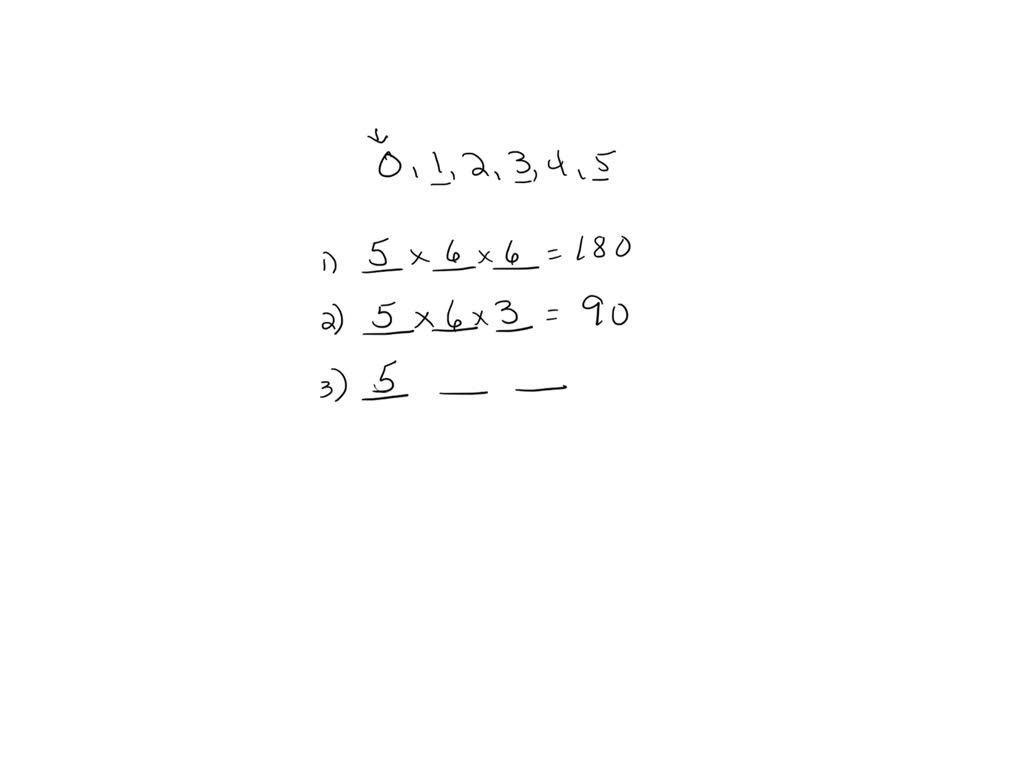 0, 1, 2, 3, 4, 5
1) 5 × 6 × 6 = 180
2) 5 × 6 × 3 = 90
3) 5 __ __